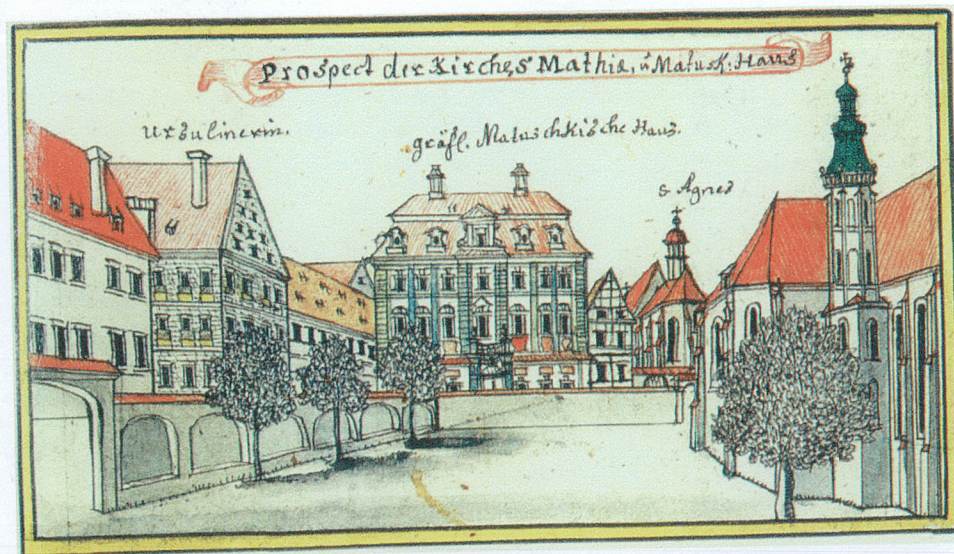 Prospect der Kirche S Mathiæ, ŭ Matusk: Haus
Ursulinerin.
gräfl. Matuschkische Haus.
S Agnes